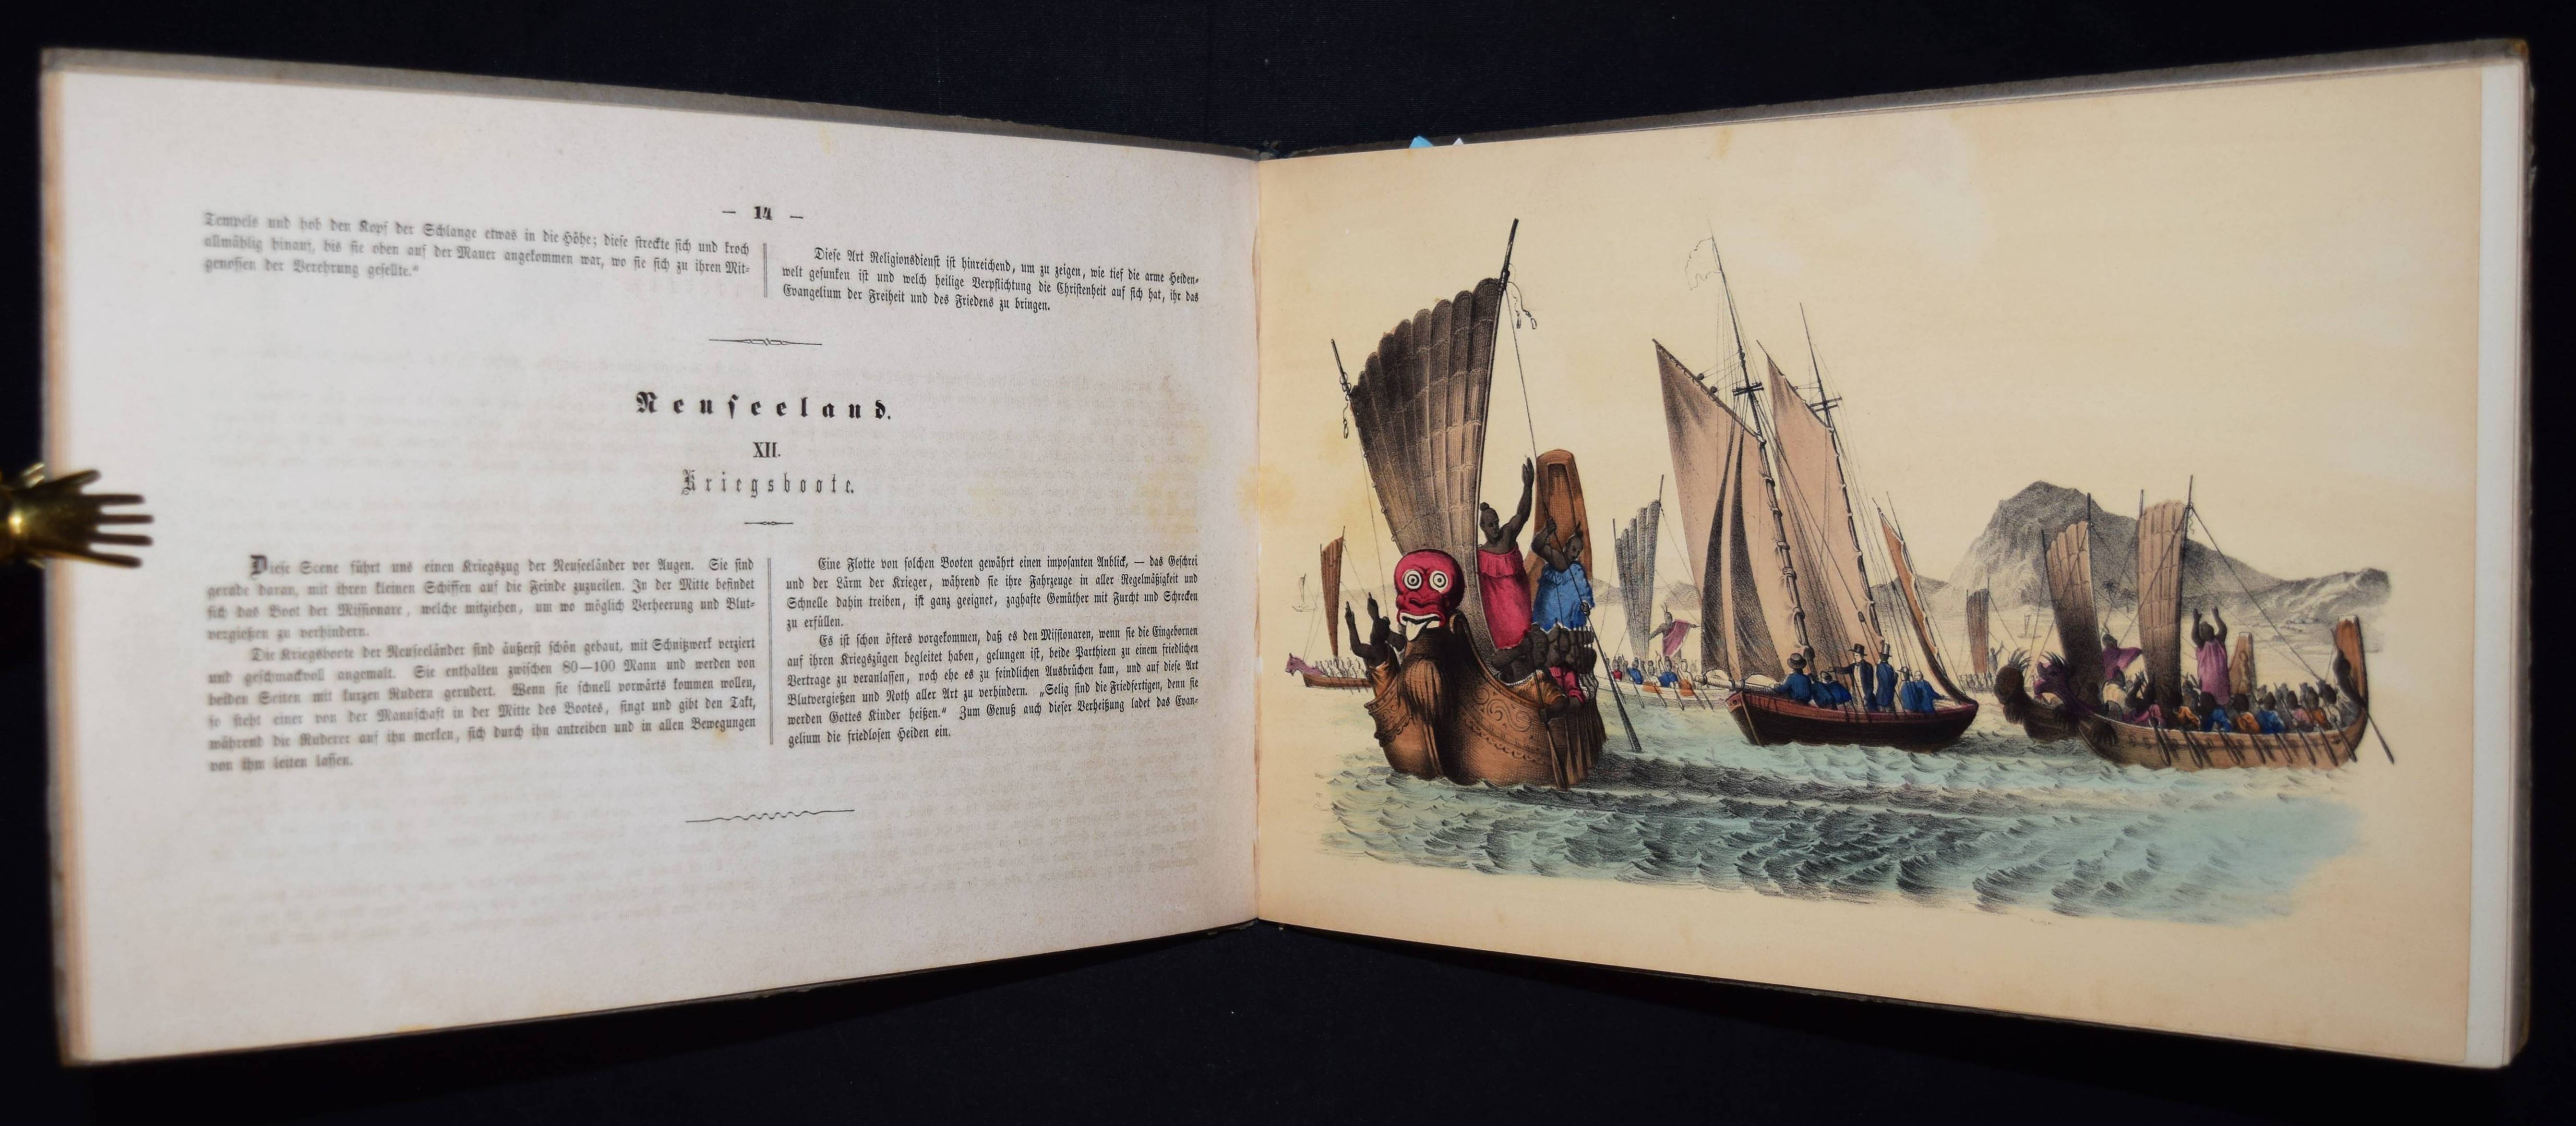 — 14 —
Tempels und hob den Kopf der Schlange etwas in die Höhe; diese streckte sich und kroch
allmählig hinauf, bis sie oben auf der Mauer angekommen war, wo sie sich zu ihren Mit-
genossen der Verehrung gesellte.“
Diese Art Religionsdienst ist hinreichend, um zu zeigen, wie tief die arme Heiden-
welt gesunken ist und welch heilige Verpflichtung die Christenheit auf sich hat, ihr das
Evangelium der Freiheit und des Friedens zu bringen.
Neuseeland.
XII.
Kriegsboote.
Diese Scene führt uns einen Kriegszug der Neuseeländer vor Augen. Sie sind
gerade daran, mit ihren kleinen Schiffen auf die Feinde zuzueilen. In der Mitte befindet
sich das Boot der Missionare, welche mitziehen, um wo möglich Verheerung und Blut-
vergießen zu verhindern.
Die Kriegsboote der Neuseeländer sind äußerst schön gebaut, mit Schnitzwerk verziert
und geschmackvoll angemalt. Sie enthalten zwischen 80—100 Mann und werden von
beiden Seiten mit kurzen Rudern gerudert. Wenn sie schnell vorwärts kommen wollen,
so steht einer von der Mannschaft in der Mitte des Bootes, singt und gibt den Takt,
während die Ruderer auf ihn merken, sich durch ihn antreiben und in allen Bewegungen
von ihm leiten lassen.
Eine Flotte von solchen Booten gewährt einen imposanten Anblick, — das Geschrei
und der Lärm der Krieger, während sie ihre Fahrzeuge in aller Regelmäßigkeit und
Schnelle dahin treiben, ist ganz geeignet, zaghafte Gemüther mit Furcht und Schrecken
zu erfüllen.
Es ist schon öfters vorgekommen, daß es den Missionaren, wenn sie die Eingebornen
auf ihren Kriegszügen begleitet haben, gelungen ist, beide Parthieen zu einem friedlichen
Vertrage zu veranlassen, noch ehe es zu feindlichen Ausbrüchen kam, und auf diese Art
Blutvergießen und Noth aller Art zu verhindern. „Selig sind die Friedfertigen, denn sie
werden Gottes Kinder heißen.“ Zum Genuß auch dieser Verheißung ladet das Evan-
gelium die friedlosen Heiden ein.